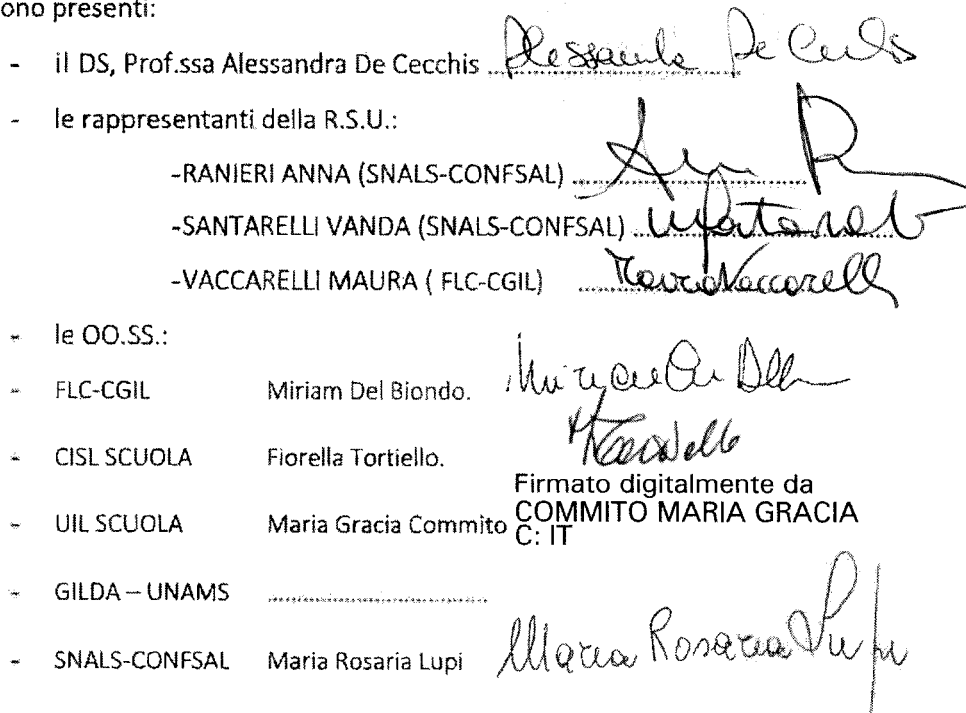 ono presenti:
- il DS, Prof.ssa Alessandra De Cecchis ........................ Alessandra De Cecchis
- le rappresentanti della R.S.U.:
-RANIERI ANNA (SNALS-CONFSAL) ........................
-SANTARELLI VANDA (SNALS-CONFSAL) ........................
-VACCARELLI MAURA ( FLC-CGIL) ........................ Maura Vaccarelli
- le OO.SS.:
- FLC-CGIL Miriam Del Biondo.
- CISL SCUOLA Fiorella Tortiello.
Firmato digitalmente da
- UIL SCUOLA Maria Gracia Commito COMMITO MARIA GRACIA
C: IT
- GILDA – UNAMS ........................
- SNALS-CONFSAL Maria Rosaria Lupi Maria Rosaria Lupi